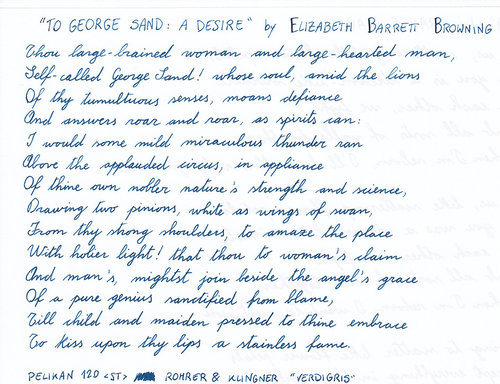 "TO GEORGE SAND: A DESIRE" by ELIZABETH BARRETT BROWNING
Thou large-brained woman and large-hearted man,
Self-called George Sand! whose soul, amid the lions
Of thy tumultuous senses, moans defiance
And answers roar and roar, as spirits can:
I would some mild miraculous thunder ran
Above the applauded circus, in appliance
Of thine own nobler nature's strength and science,
Drawing two pinions, white as wings of swan,
From thy strong shoulders, to amaze the place
With holier light! that thou to woman's claim
And man's, mightst join beside the angel's grace
Of a pure genius sanctified from blame,
Till child and maiden pressed to thine embrace
To kiss upon thy lips a stainless fame.
PELIKAN 120 <ST> ROHRER & KLINGNER "VERDIGRIS"